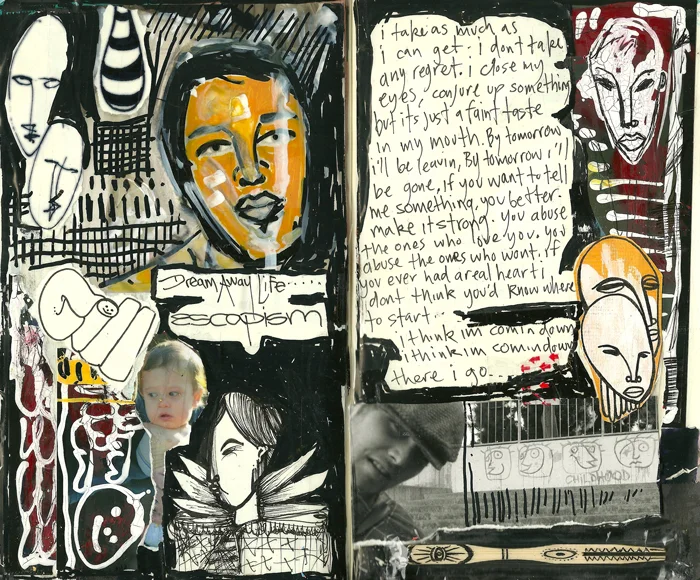 Dream Away Life.....
escapism
i take as much as
i can get. i don't take
any regret. i close my
eyes, conjure up something
but its just a faint taste
in my mouth. By tomorrow
i'll be leavin, By tomorrow i'll
be gone, if you want to tell
me something, you better
make it strong. you abuse
the ones who love you. you
abuse the ones who wont. if
you ever had a real heart i
dont think you'd know where
to start...
i think im comin down
i think im comin down
there i go...
CHILDHOOD